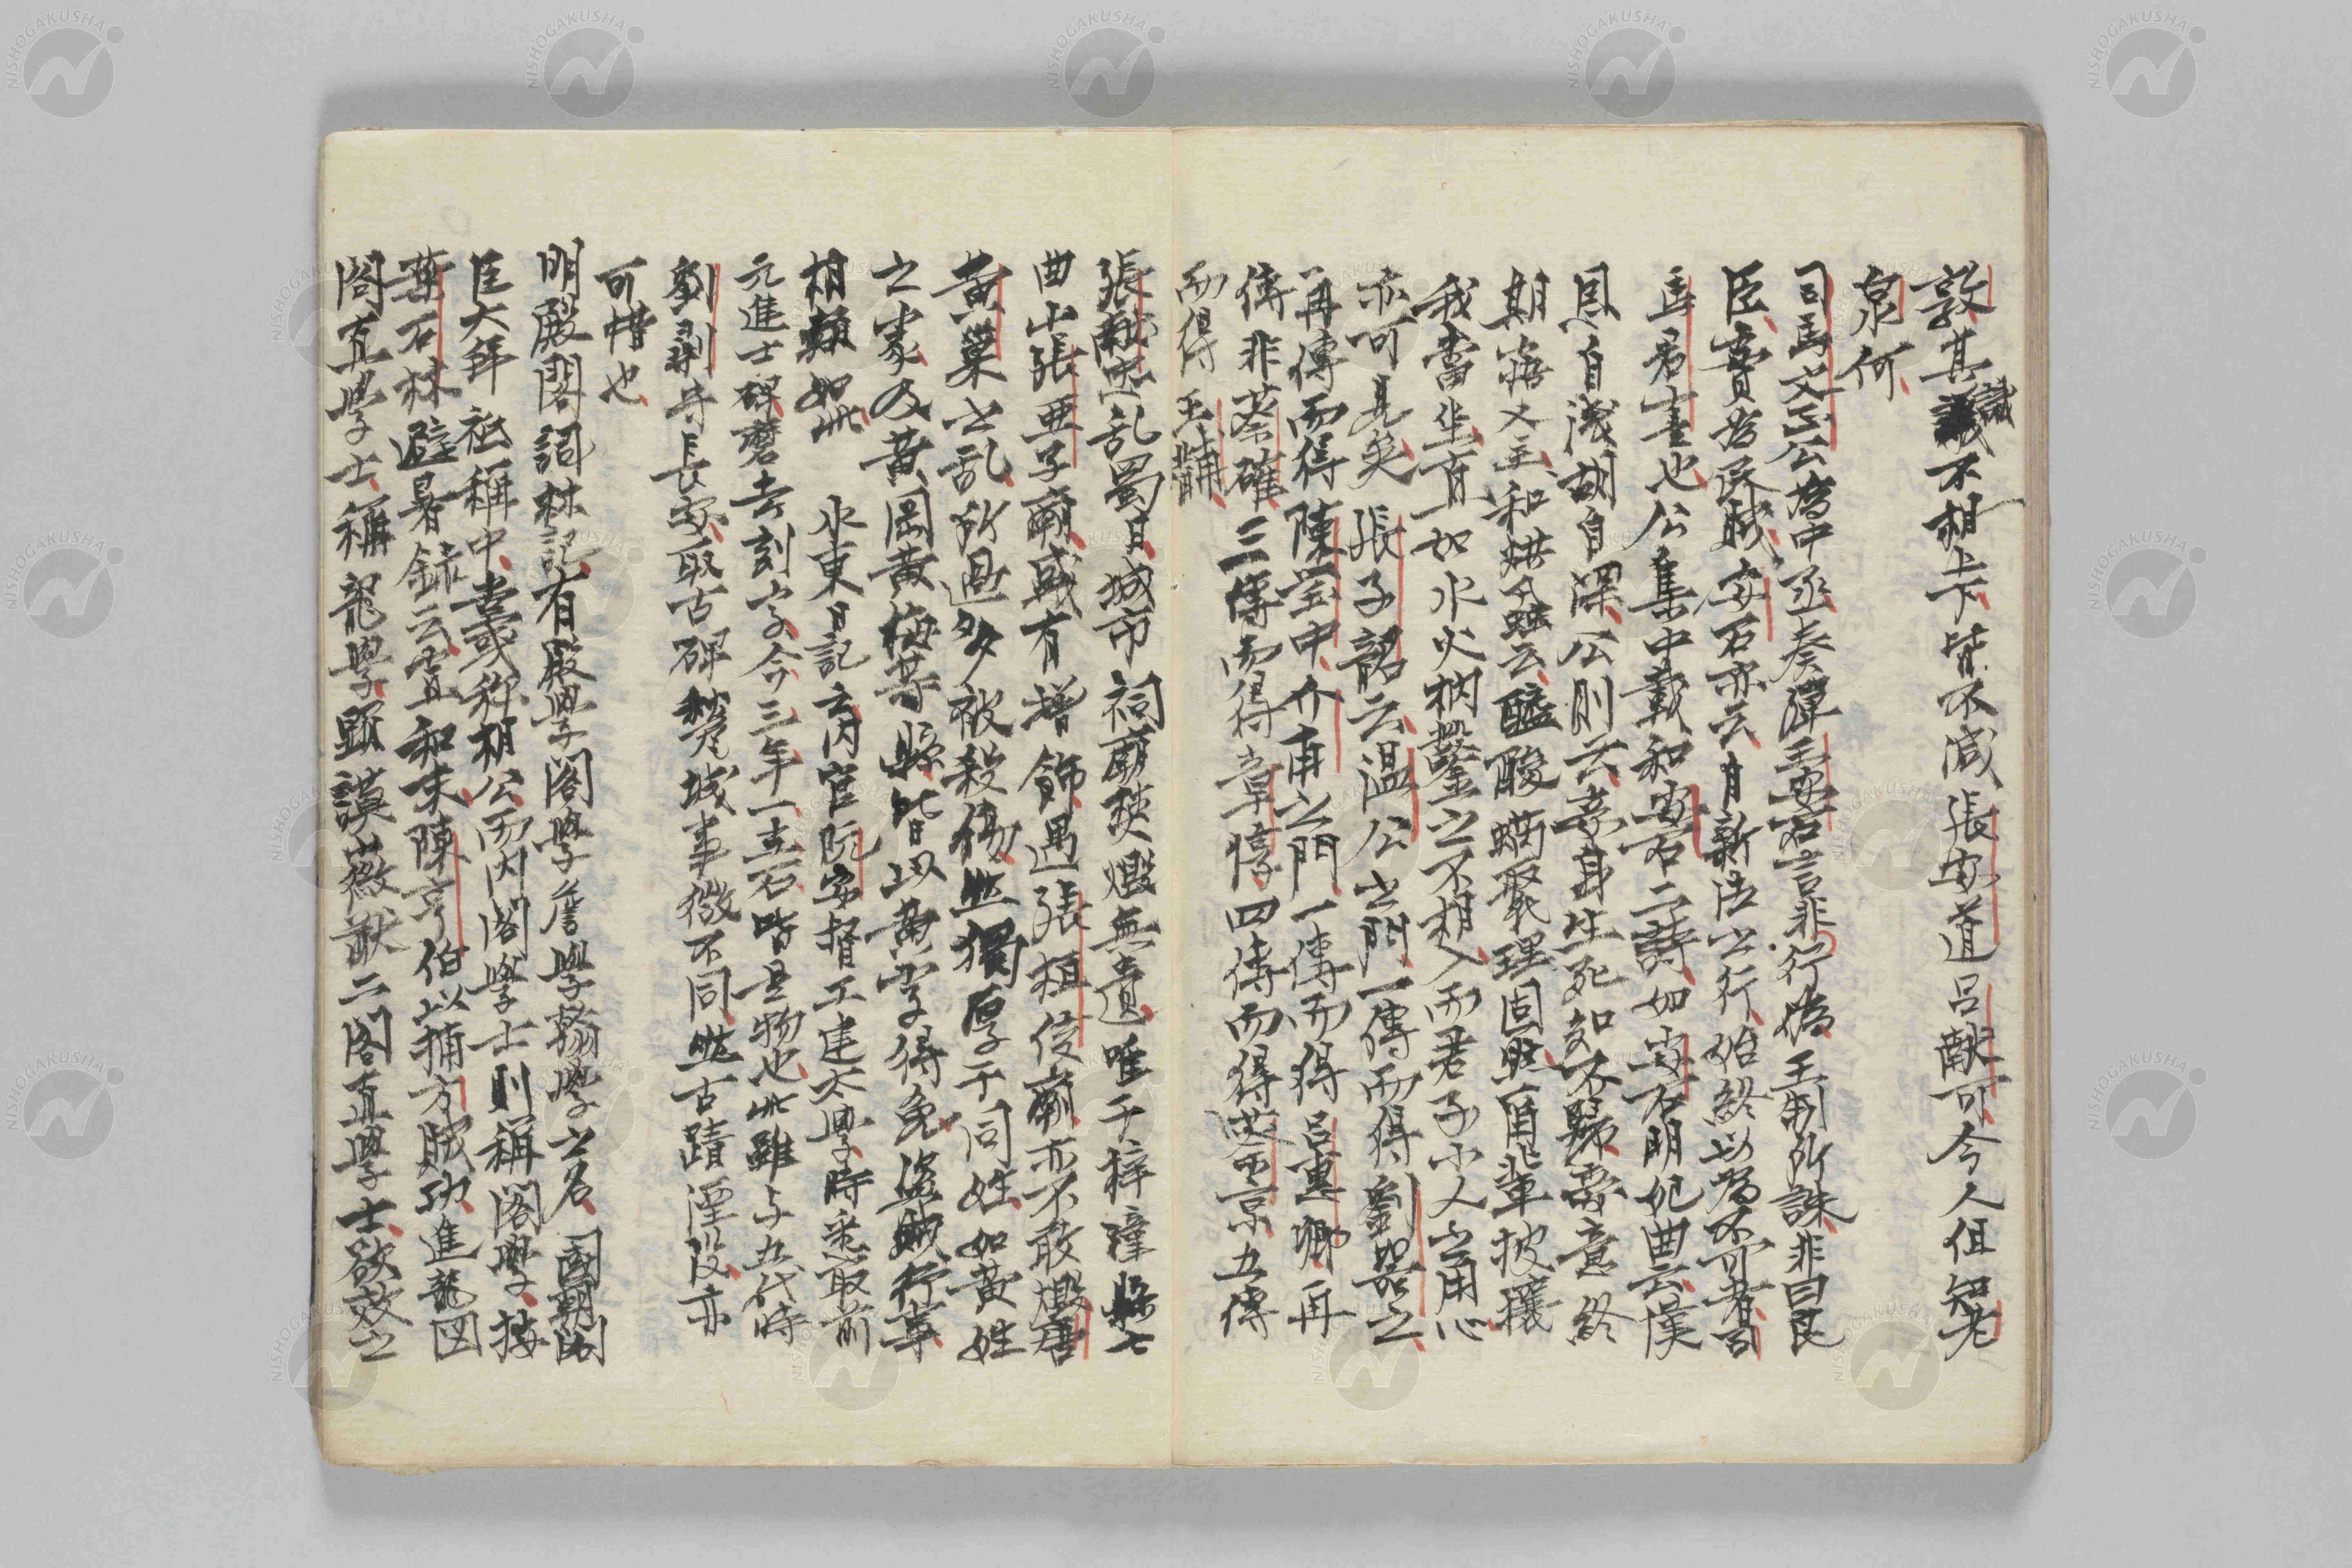 敦其識不相上下皆不減張安道呂獻可今人但知老
泉何
司馬文正公為中丞奏彈王安石言非行偽王制所誅非曰良
臣實爲民賊安石亦云自新法之行始終以爲不可者司
馬君實也公集中載和安石二詩如安石明妃曲云漢
恩自淺胡自深公則云妾身生死知不歸妾意終
期寤人主和烘蝨云醯酸螨聚理固然爾輩披攘
我當坐直如水火枘鑿之不相入而君子小人之用心
亦可見矣 張子韶云温公之門一傳而得劉器之
再傳而得陳瑩中介甫之門一傳而得呂惠卿再
傳非蔡確三傳而得章惇四傳而得蔡京五傳
而得王黼
張献忠乱蜀其城市祠廟燹燬無遺唯于梓潼縣七
曲山張亜子廟盛有增飾過張桓侯廟亦不敢燬唐
黄巢之乱所過多被殺傷然獨厚于同姓如黄姓
之家及黄岡黄梅等縣皆以黄字得免盜賊行事
相類如此 水東日記云内官阮安督工建太學時悉取前
元進士碑磨去刻字今三年一立石皆是物也此雖与五代時
劉鄩守長安取古碑甃城事微不同然古蹟湮没亦
可惜也
明殿閣詞林記有殿學閣學詹學翰學之名國朝閣
臣大拜祗稱中堂或称相公而内閣學士則稱閣學按
葉石林避暑録云宣和末陳亨伯以捕方賊功進龍図
閣直學士稱龍學顕謨徽猷二閣直學士欲效之